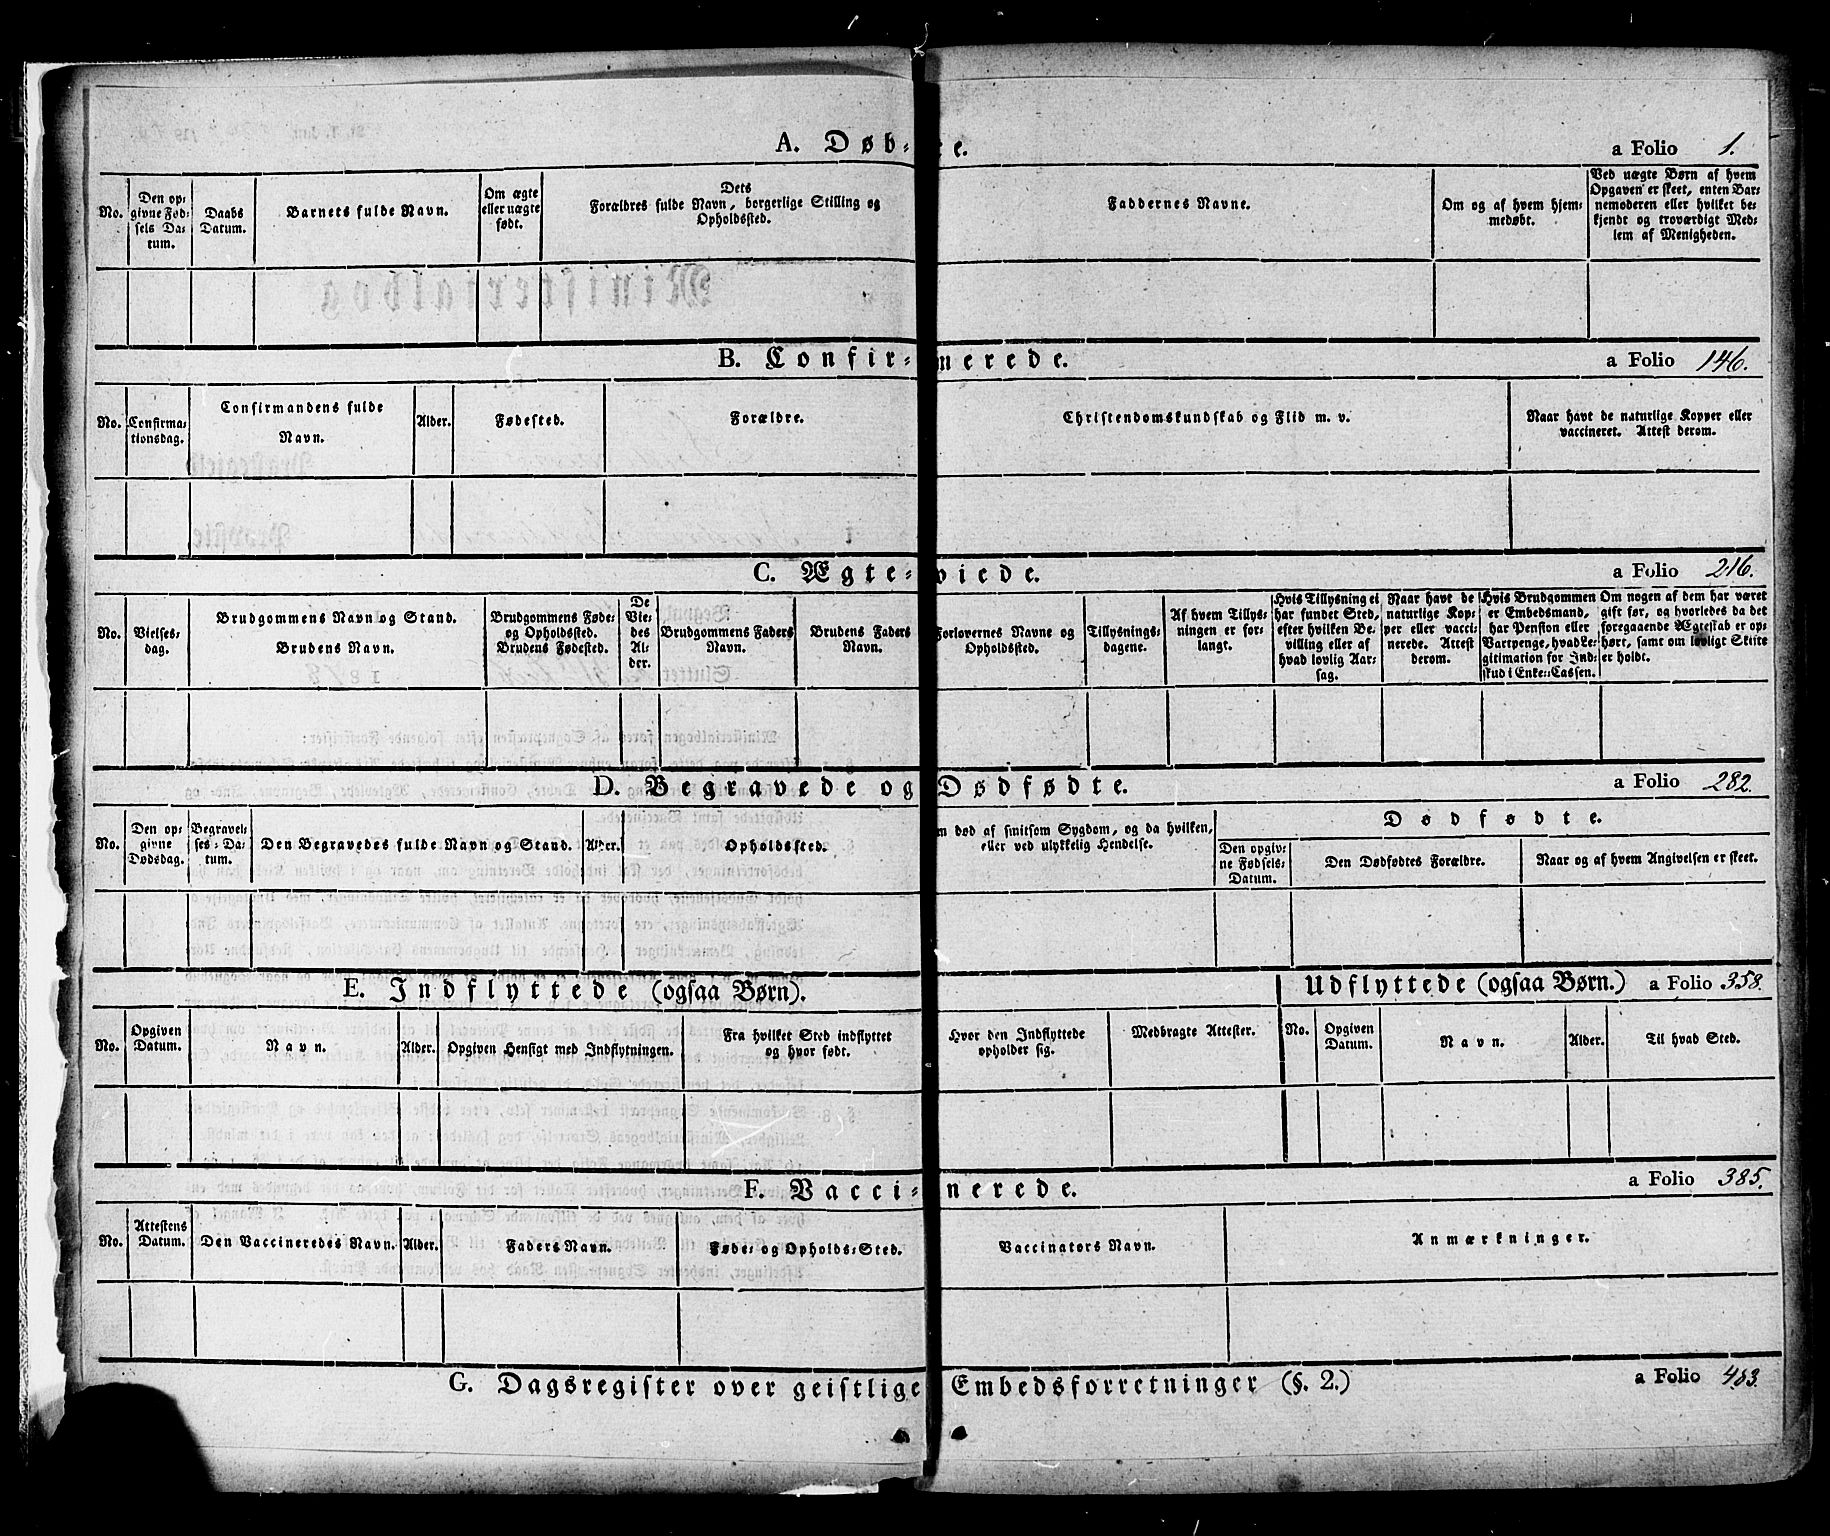 A. Døb- te. a Folio 1.
No.
Den op-
givne Fød-
sels Da-
tum.
Daabs
Datum.
Barnets fulde Navn.
Om ægte
eller uægte
født.
Dets
Forældres fulde Navn, borgerlige Stilling og
Opholdssted.
Faddernes Navne.
Om og af hvem hjem-
medøbt.
Ved uægte Børn af hvem
Opgaven er skeet, enten Bar-
nemoderen eller hvilket be-
kjendt og troværdigt Med-
lem af Menigheden.
B. Confir- merede. a Folio 146.
No.
Confirma-
tionsdag.
Confirmandens fulde
Navn.
Alder.
Fødested.
Forældre.
Christendomskundskab og Flid m. v.
Naar havt de naturlige Kopper eller
vaccineret. Attest derom.
C. Ægte- viede. a Folio 216.
No.
Vielses-
dag.
Brudgommens Navn og Stand.
Brudens Navn.
Brudgommens Føde-
og Opholdssted.
Brudens Fødested.
De
Vie-
des
Al-
der.
Brudgommens Faders
Navn.
Brudens Faders
Navn.
Forlovernes Navne og
Opholdssted.
Tillysnings-
dagene.
Af hvem Tillys-
ningen er for-
langt.
Hvis Tillysning ei
har fundet Sted,
efter hvilken Be-
villing eller af
hvad lovlig Aar-
sag.
Naar havt de
naturlige Kop-
per eller vacci-
nerede. Attest
derom.
Hvis Brudgommen
er Embedsmand,
har Pension eller
Vartpenge, hvad Le-
gitimation for Ind-
skud i Enke-Cassen.
Om nogen af dem har været
gift før, og hvorledes da det
foregaaende Ægteskab er op-
hørt, samt om lovligt Skifte
er holdt.
D. Begravede og Dødfødte. a Folio 282.
No.
Den op-
givne
Dødsdag.
Begravel-
ses-Da-
tum.
Den Begravedes fulde Navn og Stand.
Alder.
Opholdssted.
død af smitsom Sygdom, og da hvilken,
eller ved ulykkelig Hendelse.
Dødfødte.
Den opgiv-
ne Fødsels-
Datum.
Den Dødfødtes Forældre.
Naar og af hvem Angivelsen er skeet.
E. Indflyttede (ogsaa Børn). Udflyttede (ogsaa Børn.) a Folio 358.
No.
Opgiven
Datum.
Navn.
Alder.
Opgiven Hensigt med Indflytningen.
Fra hvilket Sted indflyttet
og hvor født.
Hvor den Indflyttede
opholder sig.
Medbragte Attester.
No.
Opgiven
Datum.
Navn.
Alder.
Til hvad Sted.
F. Vacci- nerede. a Folio 385.
No.
Attestens
Datum.
Den Vaccineredes Navn.
Alder.
Faders Navn.
Føde- og Opholds-Sted.
Vaccinators Navn.
Anmærkninger.
G. Dagsregister over geistlige Embedsforretninger (§. 2.) a Folio 403.